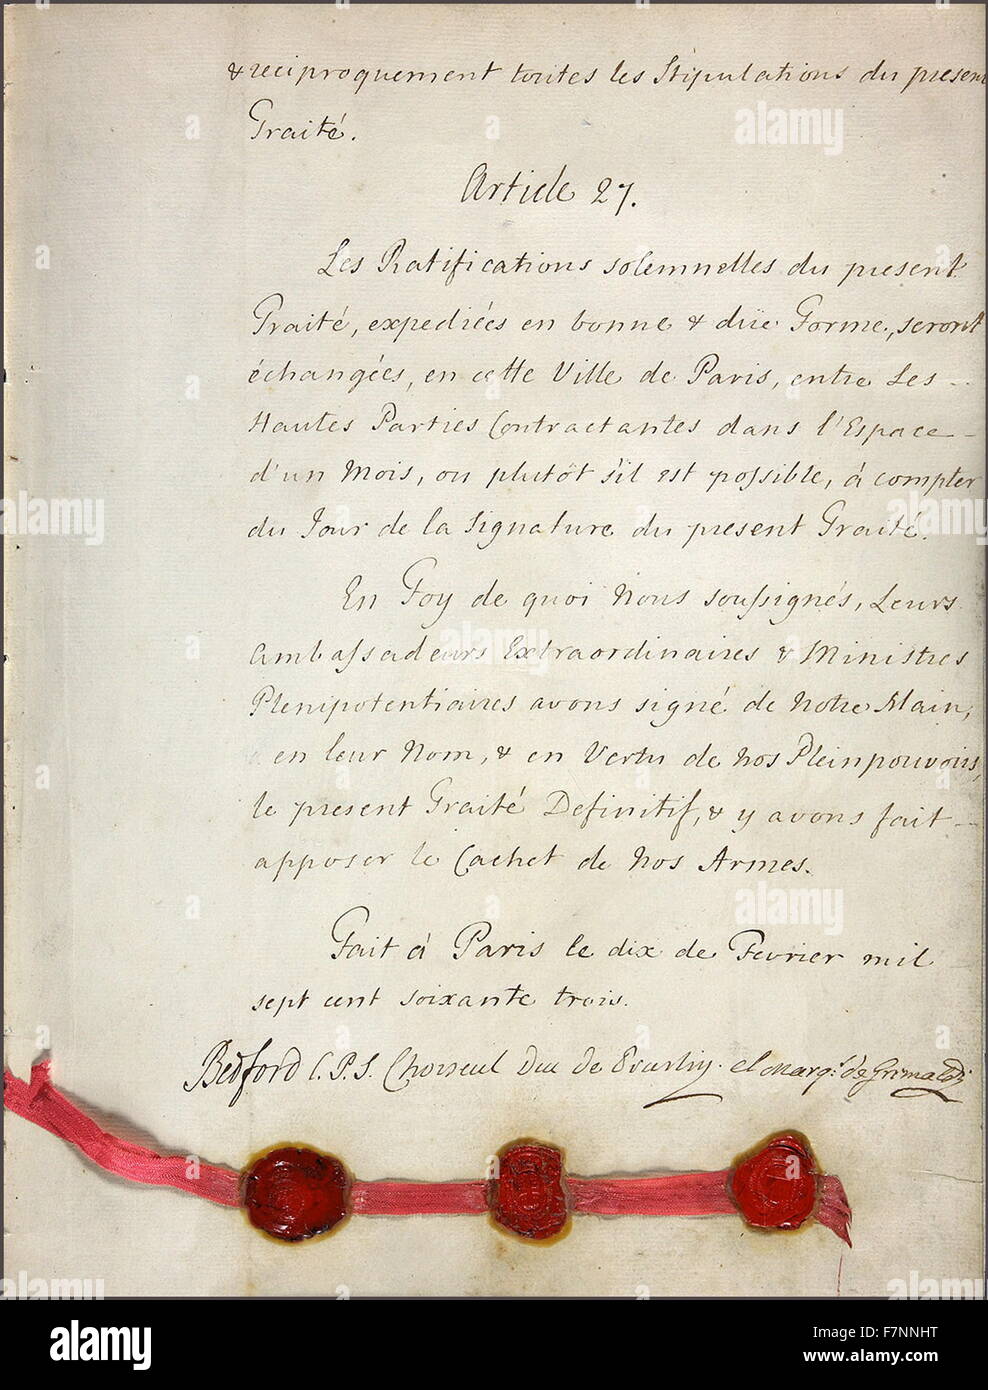 & reciproquement toutes les Stipulations du present
Traité.
Article 27.
Les Ratifications solemnelles du present
Traité, expediées en bonne & düe Forme, seront
échangées, en cette Ville de Paris, entre Les
Hautes Parties Contractantes dans l'Espace
d'un Mois, ou plutôt s'il est possible, á compter
du Jour de la Signature du present Traité.
En Foy de quoi Nous soussignés, Leurs
Ambassadeurs Extraordinaires & Ministres
Plenipotentiaires avons signé de Notre Main,
en leur Nom, & en Vertu de nos Pleinpouvoirs,
le present Traité Definitif, & y avons fait
apposer le Cachet de nos Armes.
Fait á Paris le dix de Fevrier mil
sept cent soixante trois.
Bedford C.P.S. Choiseul Duc de el Marq.s de Grimaldi
alamy
alamy
Image ID: F7NNHT
www.alamy.com